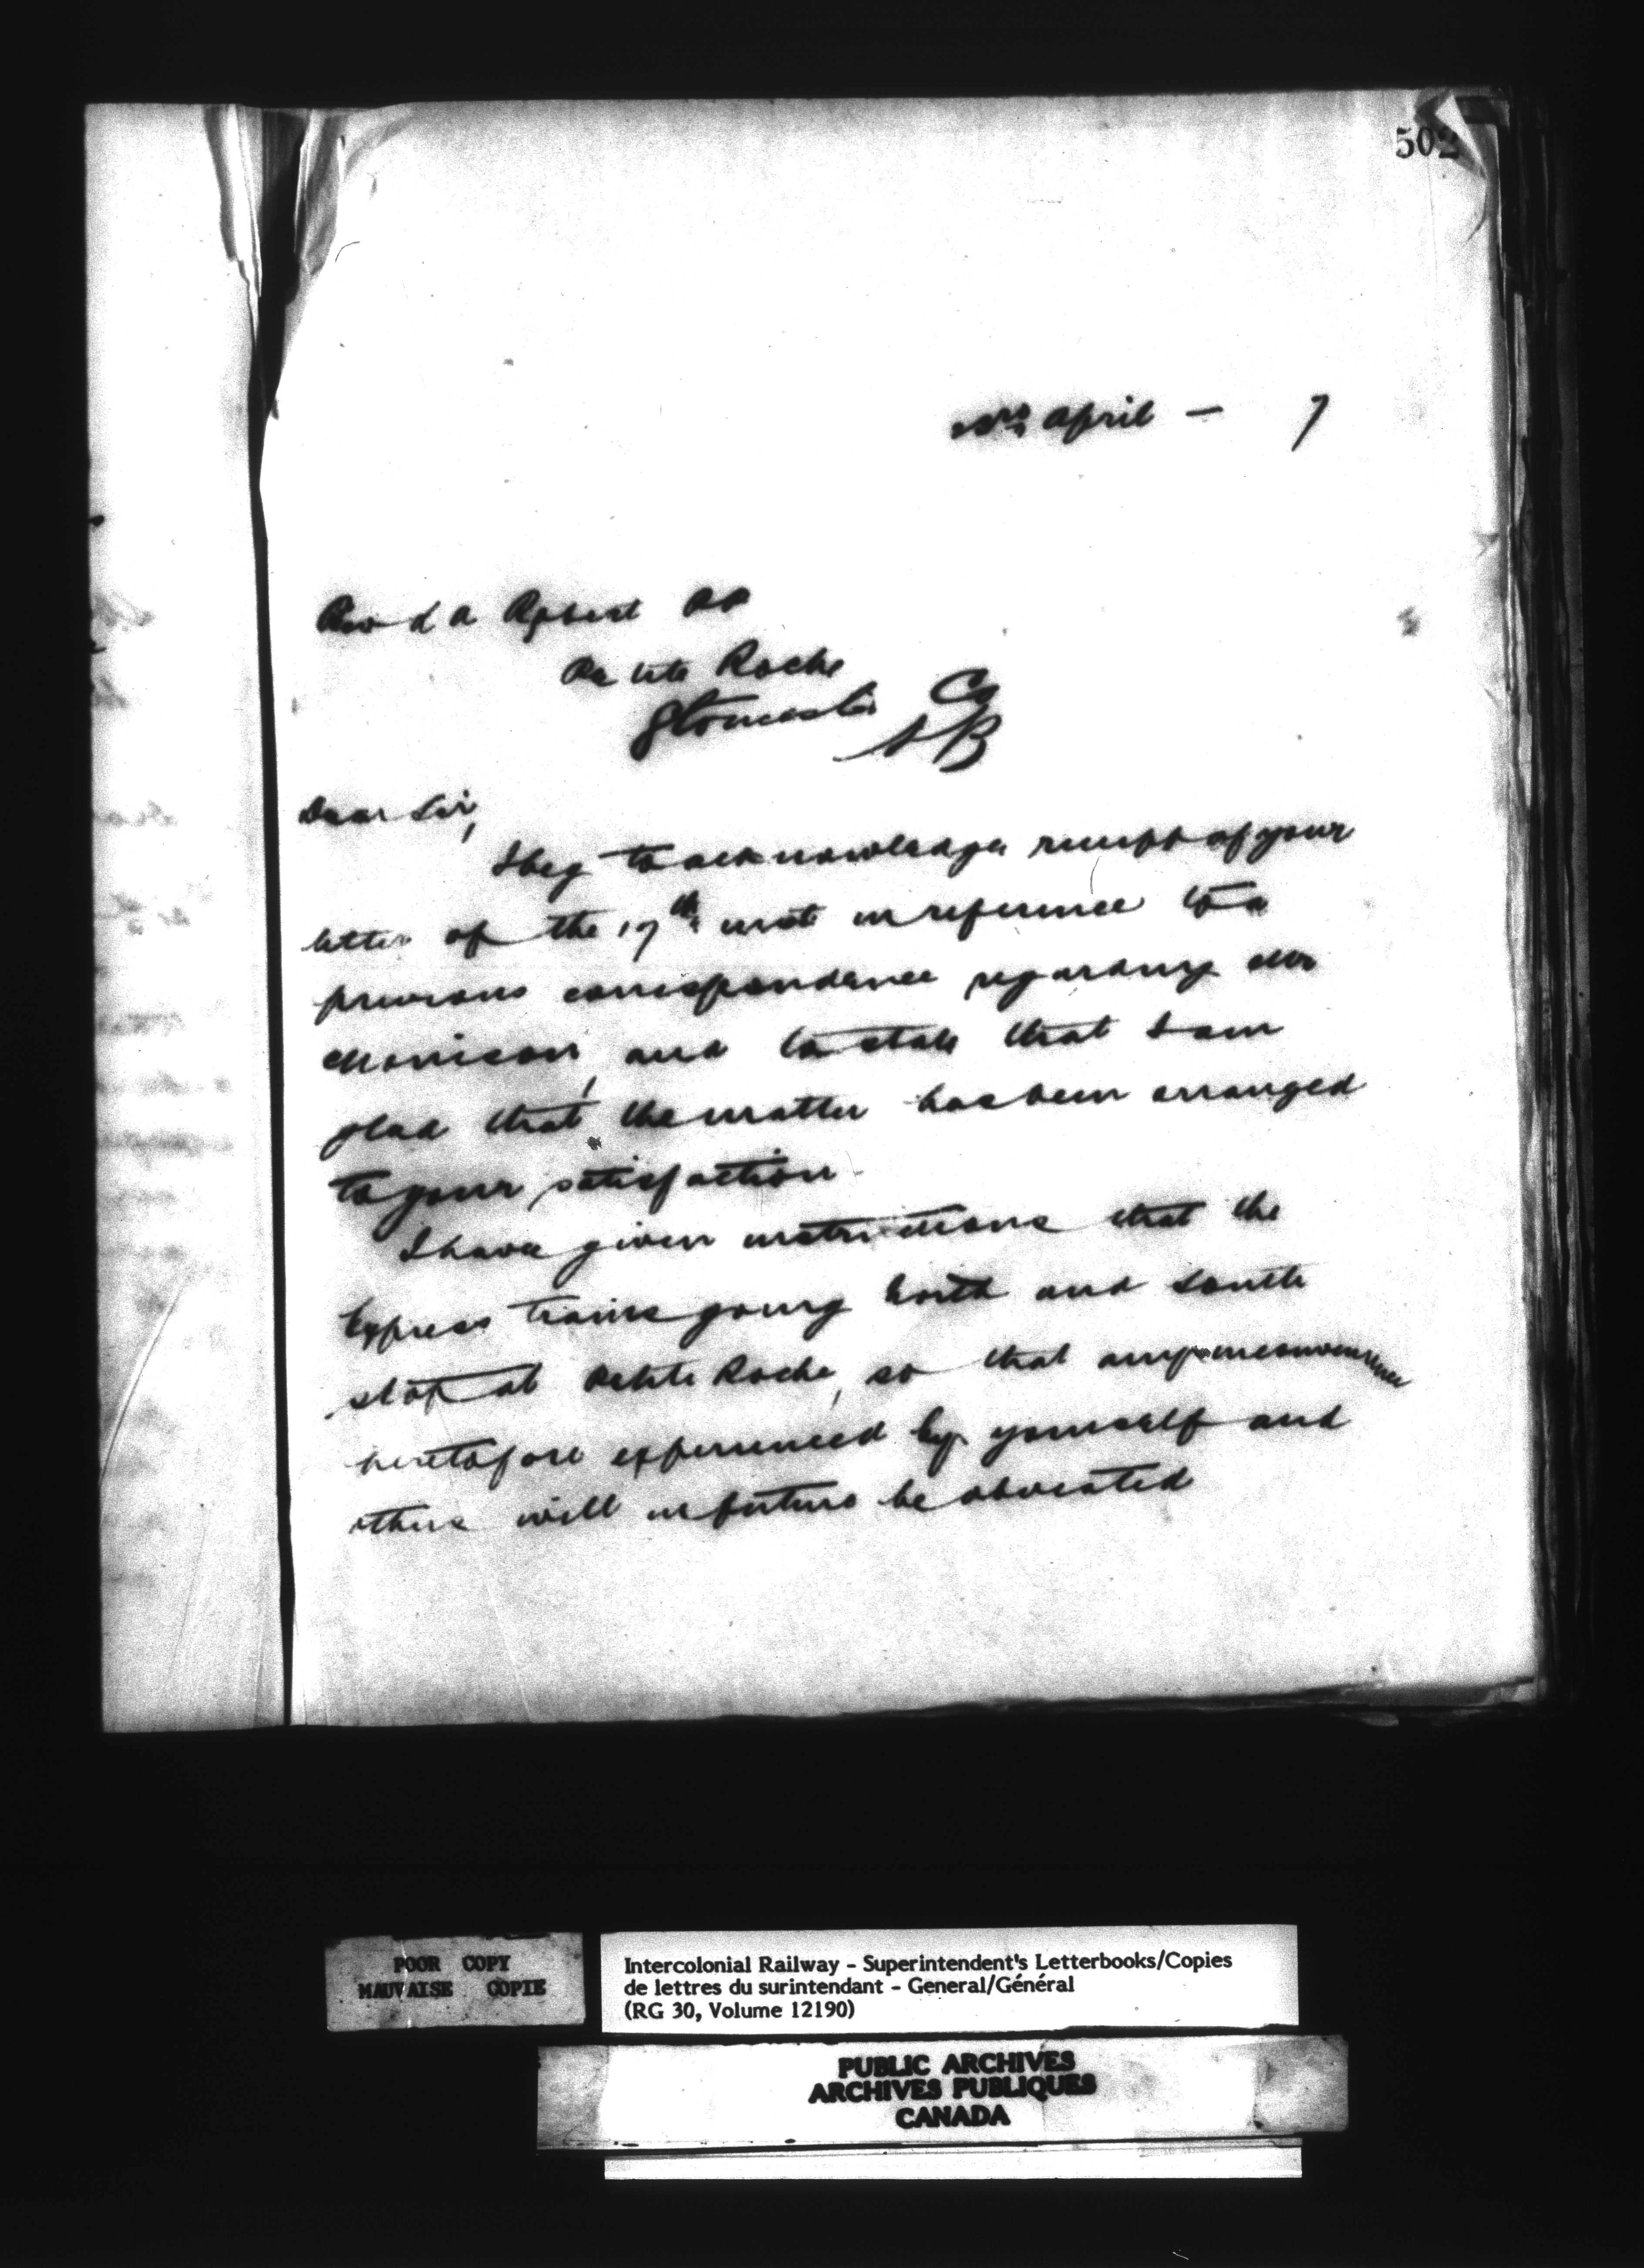 502
23rd April – 7
Revd A Robert PP
Petite Roche
Gloucester Co
NB
Dear Sir,
I beg to acknowledge receipt of your
letter of the 17th inst in reference to a
previous correspondence regarding Mr
Morrison, and to state that I am
glad that the matter has been arranged
to your satisfaction
I have given instructions that the
Express trains going North and South
stop at Petite Roche, so that any inconvenience
heretofore experienced by yourself and
others will in future be obviated
POOR COPY
MAUVAISE COPIE
Intercolonial Railway - Superintendent's Letterbooks/Copies
de lettres du surintendant - General/Général
(RG 30, Volume 12190)
PUBLIC ARCHIVES
ARCHIVES PUBLIQUES
CANADA